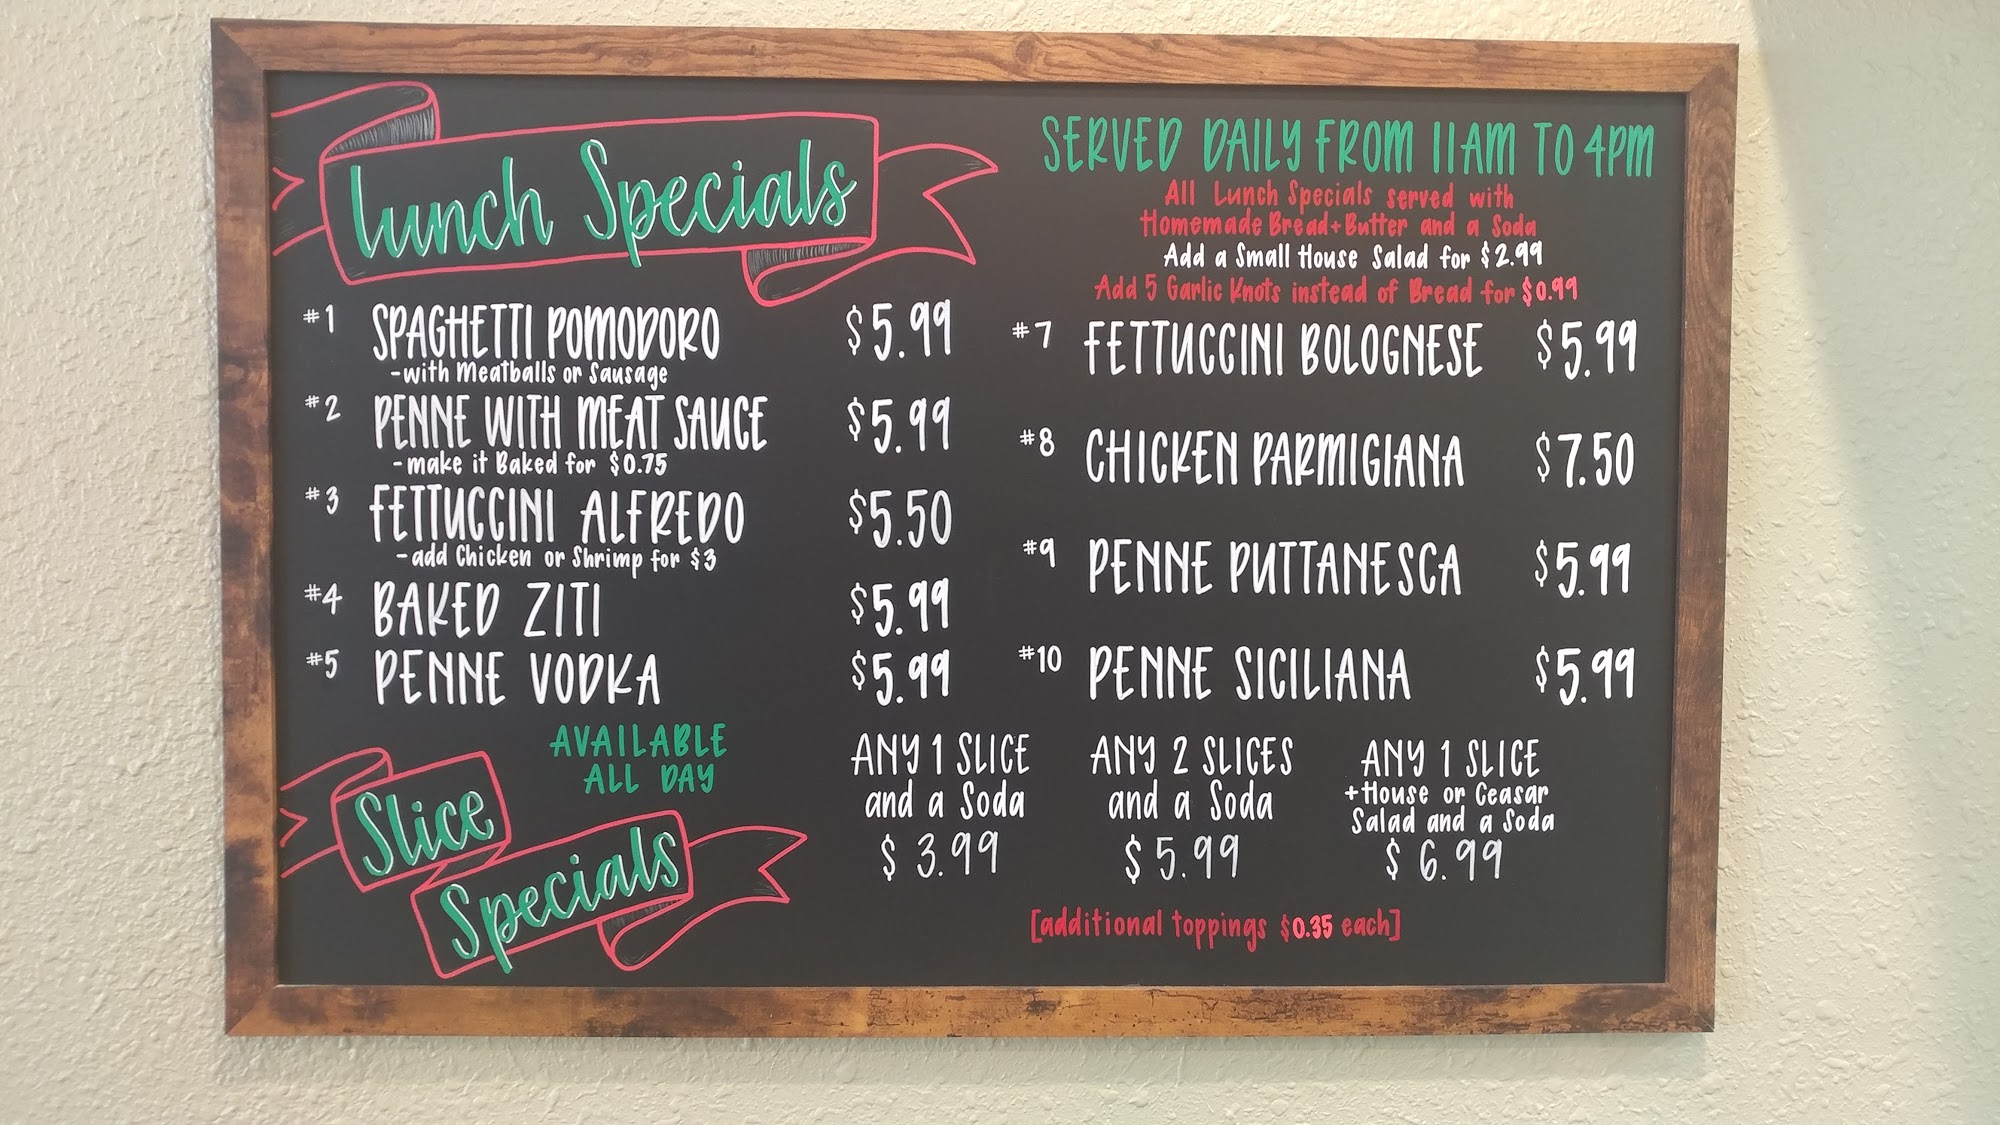 Lunch Specials
SERVED DAILY FROM 11AM TO 4PM
All Lunch Specials served with
Homemade Bread+Butter and a Soda
Add a Small House Salad for $2.99
Add 5 Garlic Knots instead of Bread for $0.99
#1 SPAGHETTI POMODORO $5.99
-with Meatballs or Sausage
#2 PENNE WITH MEAT SAUCE $5.99
-make it Baked for $0.75
#3 FETTUCCINI ALFREDO $5.50
-add Chicken or Shrimp for $3
#4 BAKED ZITI $5.99
#5 PENNE VODKA $5.99
#7 FETTUCCINI BOLOGNESE $5.99
#8 CHICKEN PARMIGIANA $7.50
#9 PENNE PUTTANESCA $5.99
#10 PENNE SICILIANA $5.99
Slice
Specials
AVAILABLE
ALL DAY
ANY 1 SLICE
and a Soda
$3.99
ANY 2 SLICES
and a Soda
$5.99
ANY 1 SLICE
+House or Ceasar
Salad and a Soda
$6.99
[additional toppings $0.35 each]